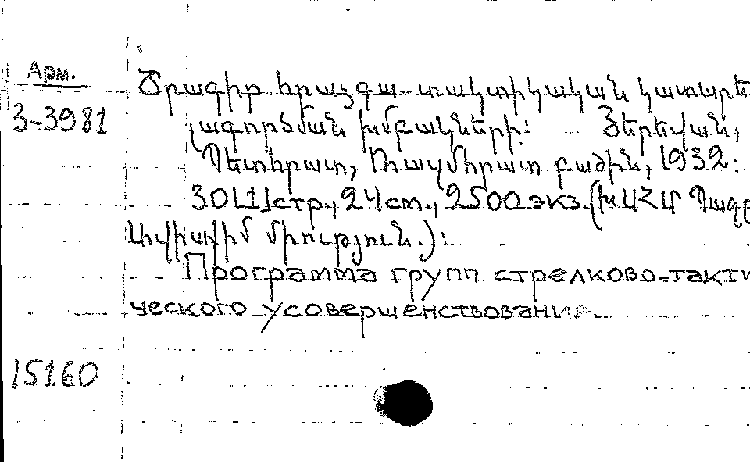 Арм.
3-3981
Ծրագիր հրաձգա-տակտիկական կատարե
լագործման խմբակների: Յերեվան,
Պետհրատ, Ռազմհրատ բաժին, 1932:
30[1]стр., 24см., 2500экз. (ԽՍՀՄ
միություն.):
Программа групп стрелково-такти
ческого усовершенствования
15160